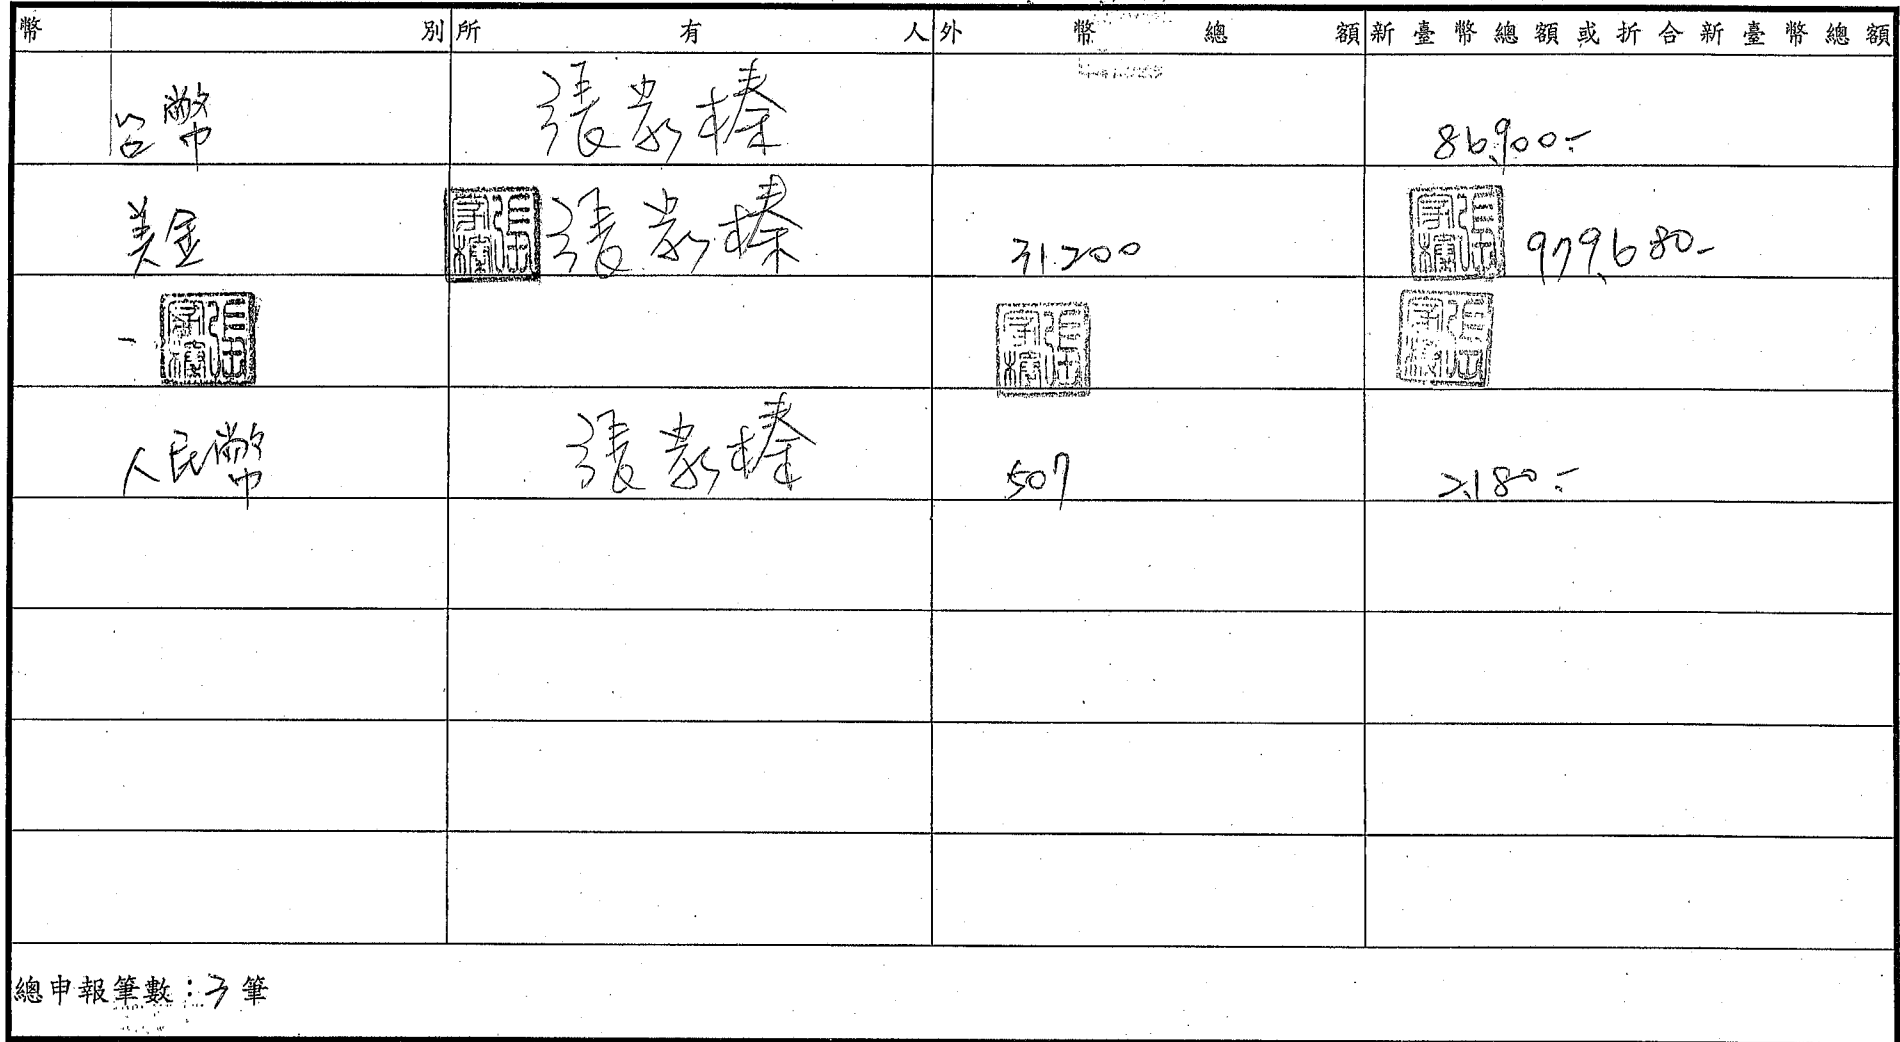 幣別 所有人 外幣總額 新臺幣總額或折合新臺幣總額
台幣 張 榛 86,900.-
美金 張 榛 31.200 979,680-
人民幣 張 榛 507 2,180.-
總申報筆數：3 筆